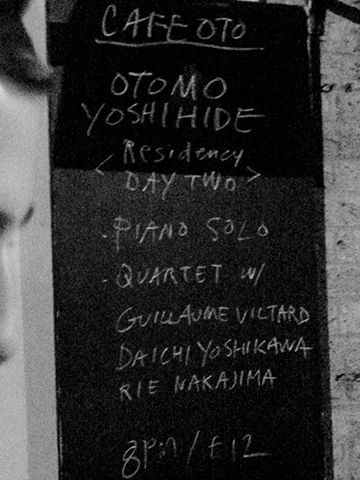 CAFE OTO
OTOMO
YOSHIHIDE
Residency
< DAY TWO >
. PIANO SOLO
- QUARTET W/
GUILLAUME VILTARD
DAICHI YOSHIKAWA
RIE NAKAJIMA
8pm / £12